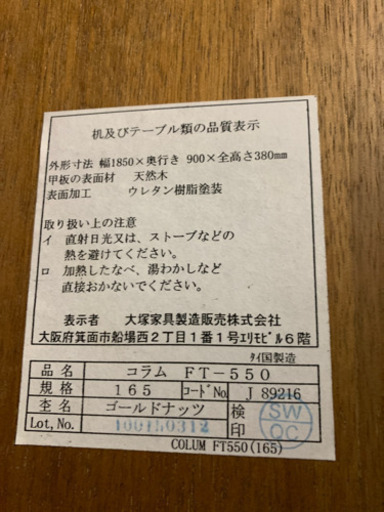 机及びテーブル類の品質表示
外形寸法 幅1850×奥行き 900×全高さ380mm
甲板の表面材 天然木
表面加工 ウレタン樹脂塗装
取り扱い上の注意
イ 直射日光又は、ストーブなどの
熱を避けてください。
ロ 加熱したなべ、湯わかしなど
直接おかないでください。
表示者 大塚家具製造販売株式会社
大阪府箕面市船場西2丁目1番1号エリモビル6階
タイ国製造
品名 コラム FT-550
規格 165 コードNo. J 89216
杢名 ゴールドナッツ 検印 SW QC
Lot,No. 100150312
COLUM FT550(165)